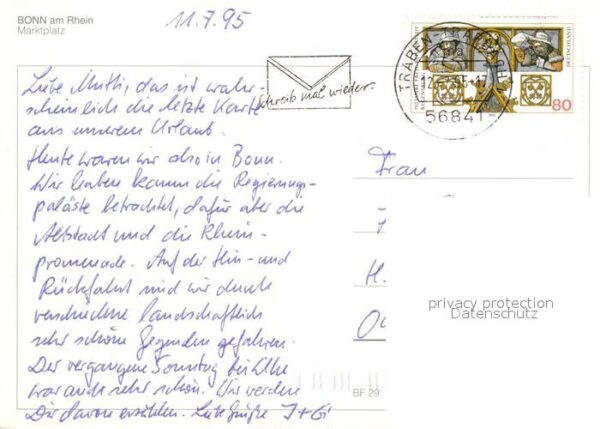 BONN am Rhein
Marktplatz
11.7.95
Liebe Mutti, das ist wahr-
scheinlich die letzte Karte
aus unserem Urlaub.
Heute waren wir also in Bonn.
Wir haben kaum die Regierungs-
paläste betrachtet, dafür aber die
Altstadt und die Rhein-
promenade. Auf der Hin- und
Rückfahrt sind wir durch
verschiedene landschaftlich
sehr schöne Gegenden gefahren.
Der vergangene Sonntag bei Elke
war auch sehr schön. Wir werden
Dir davon erzählen. Liebe Grüße I+G
schreib mal wieder.
TRABEN-TRARBACH
56841
DEUTSCHLAND
80
Frau
H.
privacy protection
Datenschutz
BF 29